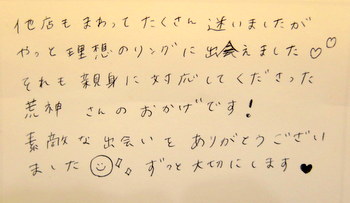 他店もまわって たくさん 迷いましたが
やっと 理想のリングに 出会えました♡♡
それも 親身に 対応してくださった
荒神 さんの おかげです!
素敵な出会いを ありがとうござい
ました☺ ずっと 大切にします♥